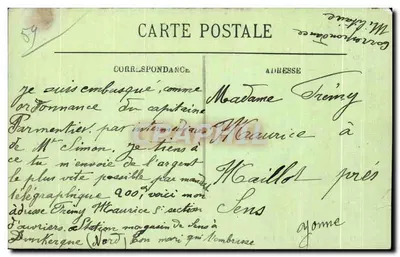 59
CARTE POSTALE
Correspondance
Militaire
CORRESPONDANCE
ADRESSE
je suis embusqué, comme
ordonnance du capitaine
Parmentier, par
de Mr Simon, je tiens à
ce tu m'envoie de l'argent
le plus vite possible par mandat
télégraphique 200f, voici mon
adresse Frémy Maurice section
d'ouvriers Station magasin de Sens à
Dunkerque (Nord) Ton mari qui t'embrasse
Madame Frémy
Maurice à
Maillot près
Sens
yonne